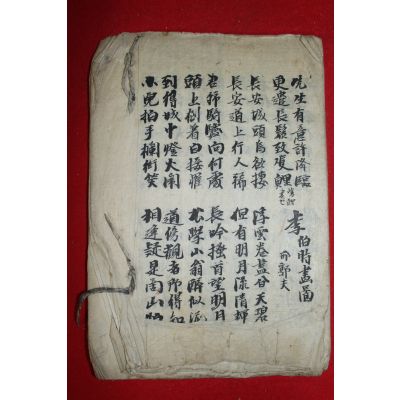 先生有意許降臨
更遣長鬚致雙鯉
李伯時畫圖
邢敦夫
長安城頭烏欲棲
長安道上行人稀
浮雲卷盡暮天碧
但有明月流清輝
君獨騎驢向何處
頭上倒着白接䍦
長吟搔首望明月
不學山翁醉似泥
到得城中燈火鬧
小兒拍手攔街笑
道傍觀者那得知
相逢疑是商山皓